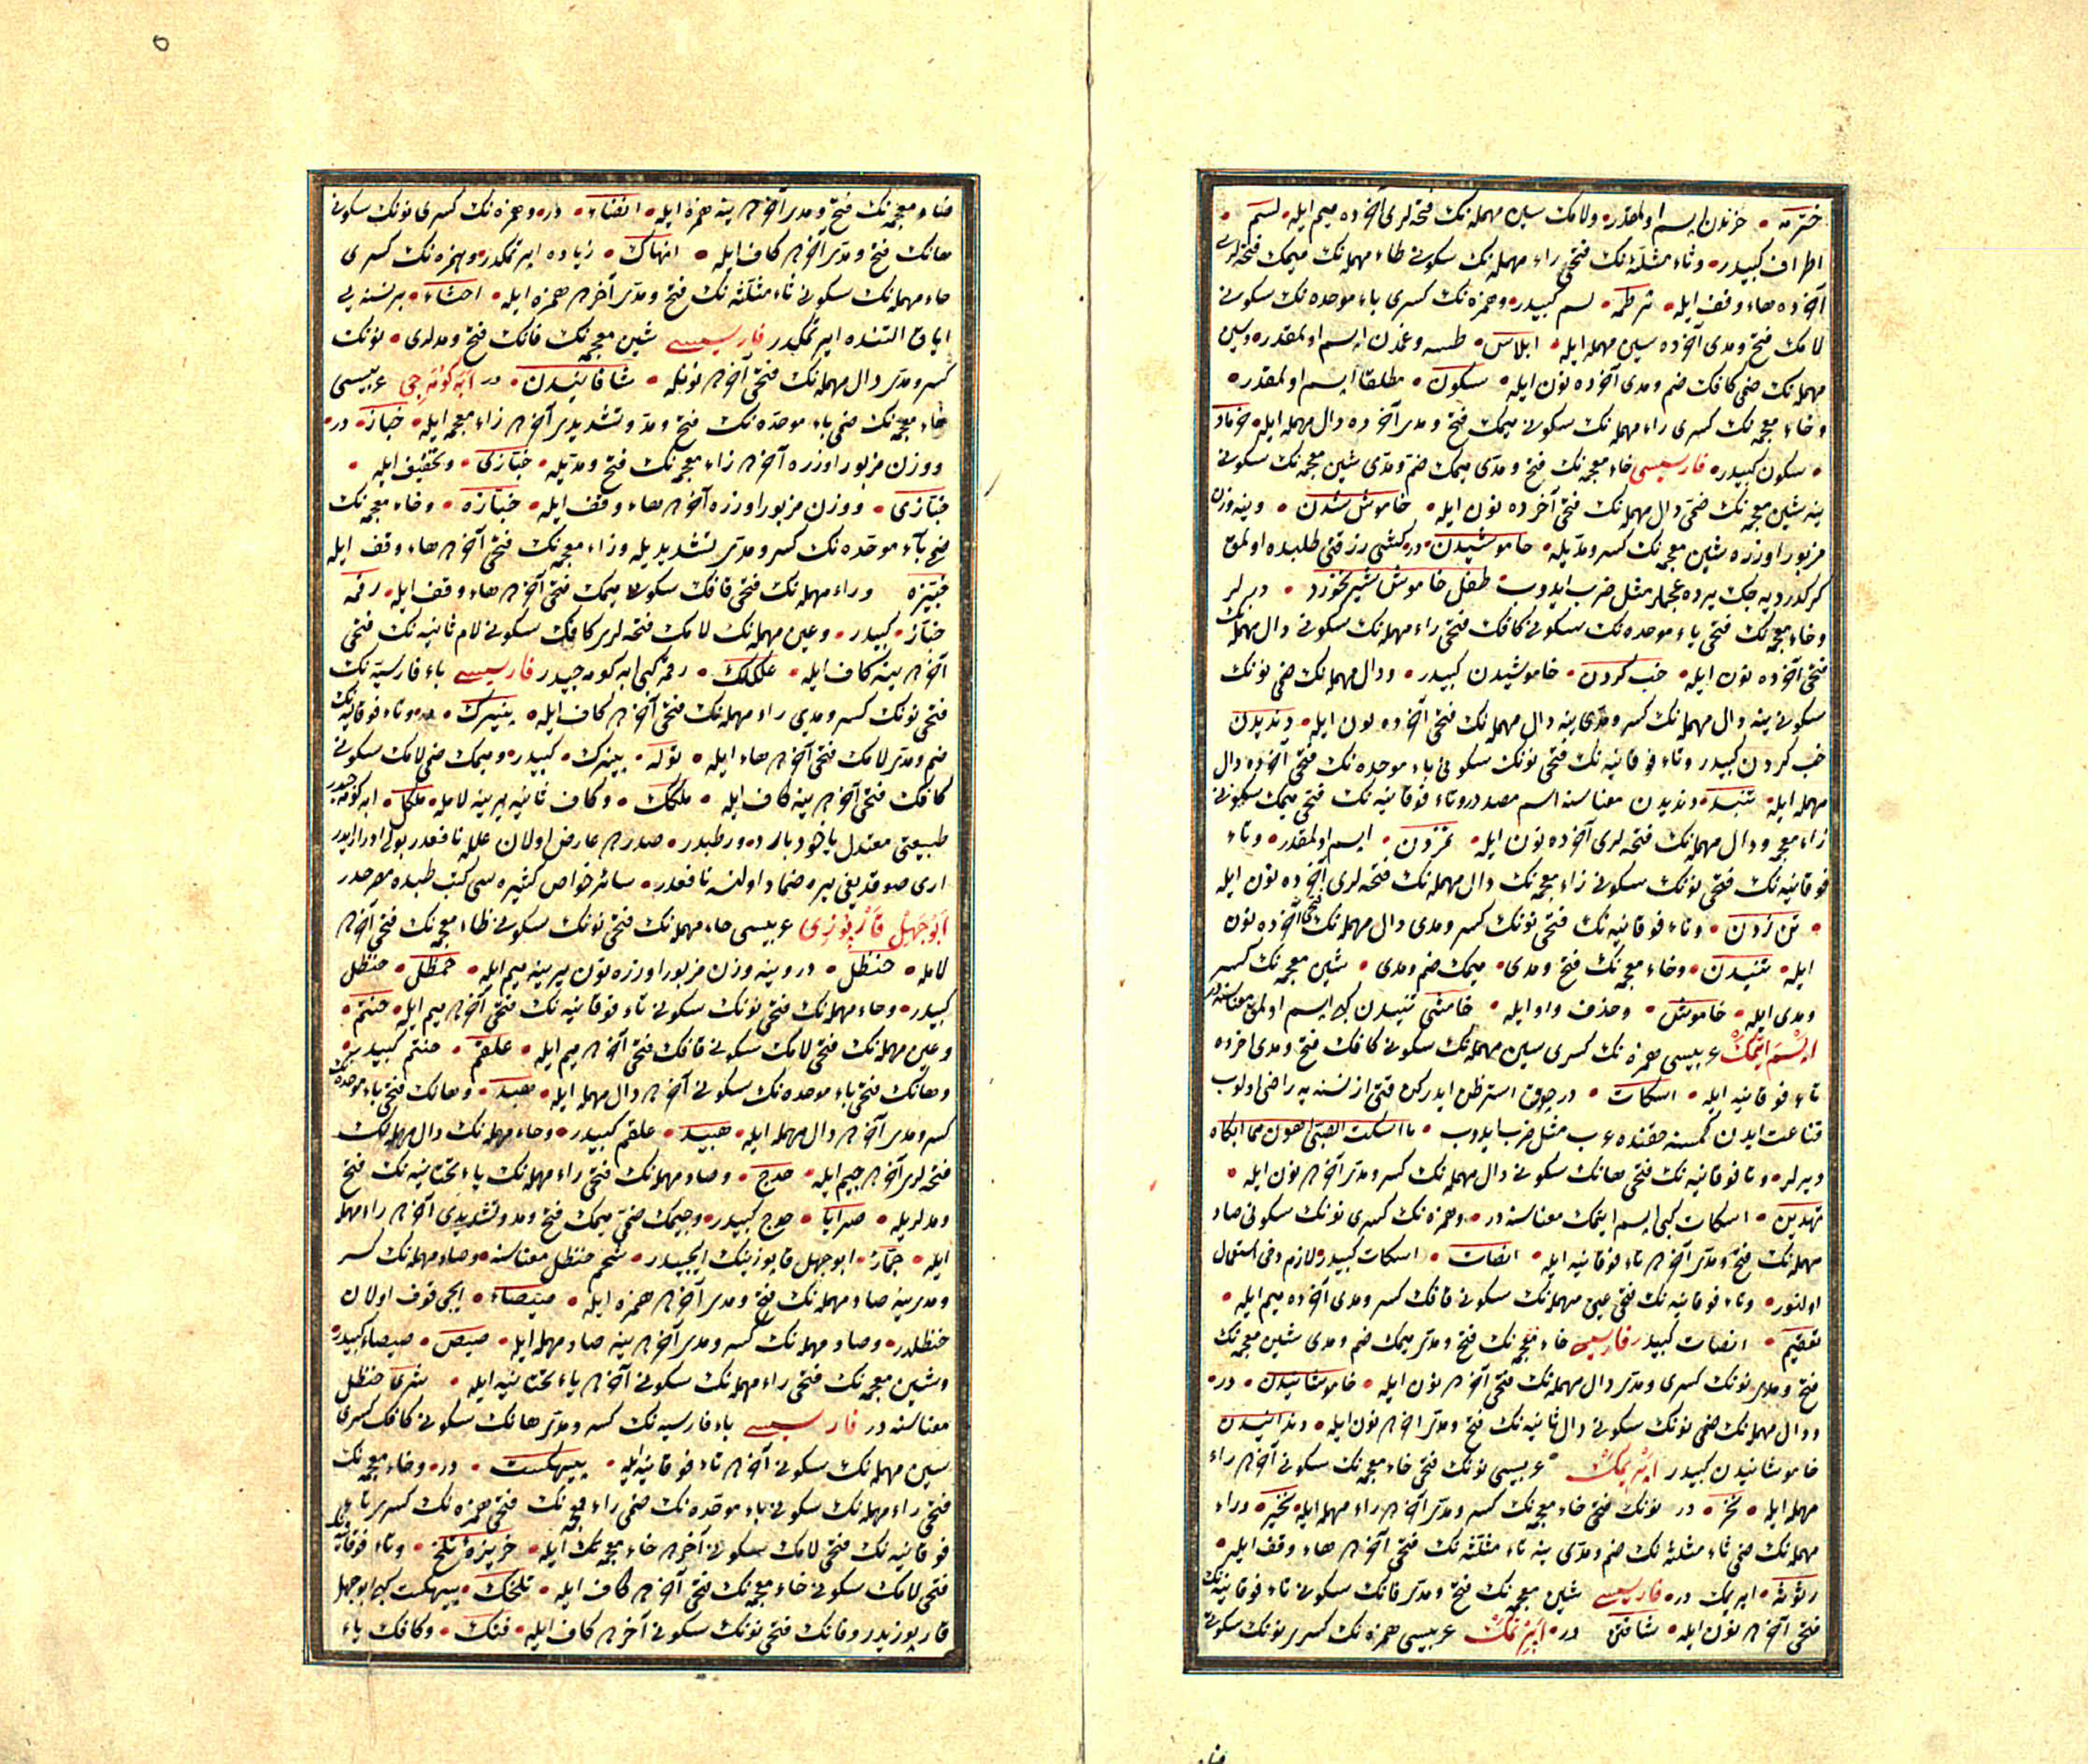 خترمه • حزندن ایسم اولمقدر • ولامک سین مهمله نک فتحه لری آخرده میم ایله • لسم •
اطراف کبیدر • وثاء مثلثه نک فتحی راء مهمله نک سکونی طاء مهمله نک میمک فتحه لری
آخرده هاء وقف ایله • ثرطمه • لسم کبیدر • وهمزه نک کسری باء موحده نک سکونی
لامک فتح ومدی آخرده سین مهمله ایله • ابلاس • اولمقدر • وسین
مهمله نک ضمی کافک ضم ومدی آخرده نون ایله • سکون • مطلقا ایسم اولمقدر •
وخاء معجمه نک کسری راء مهمله نک سکونی میمک فتح ومدی آخرده دال مهمله ایله • خرماد
• سکون کبیدر • فارسیسی خاء معجمه نک فتح ومدی میمک ضم ومدی شین معجمه نک سکونی
ینه شین معجمه نک ضمی دال مهمله نک فتحی آخرده نون ایله • خاموش شدن • وینه وزن
مزبور اوزره شین معجمه نک کسر ومدیله • خاموشیدن • در • کشی رزقنی طلبده اولمق
کرکدر دیه جک یرده عجملر مثل ضرب ایدوب • طفل خاموش شیر نخورد • دیرلر
وخاء معجمه نک فتحی باء موحده نک سکونی کافک فتحی راء مهمله نک سکونی دال مهمله نک
فتحی آخرده نون ایله • خب کردن • خاموشیدن کبیدر • ودال مهمله نک ضمی نونک
سکونی ینه دال مهمله نک کسر ومدی ینه دال مهمله نک فتحی آخرده نون ایله • دندیدن
خب کردن کبیدر وتاء فوقانیه نک فتحی نونک سکونی باء موحده نک فتحی آخرده دال
مهمله ایله • تنبد • دندیدن معناسنه اسم مصدر در وتاء فوقانیه نک فتحی میمک سکونی
زاء معجمه ودال مهمله نک فتحه لری آخرده نون ایله • تمزدن • ایسم اولمقدر • وتاء
فوقانیه نک فتحی نونک سکونی زاء معجمه نک دال مهمله نک فتحه لری آخرده نون ایله
• تن زدن • وتاء فوقانیه نک فتحی نونک کسر ومدی دال مهمله نک فتحی آخرده نون
ایله • تنیدن • وخاء معجمه نک فتح ومدی • میمک ضم ومدی • شین معجمه نک کسر
ومدی ایله • خاموشی • وحذف واو ایله • خامشی تنیدن کبی ایسم اولمق معناسنه در
ایسم ایتمک عربیسی همزه نک کسری سین مهمله نک سکونی کافک فتح ومدی آخرده
تاء فوقانیه ایله • اسکات • در چوق ایدرکن قتی از نسنه یه راضی اولوب
قناعت ایدن کمسنه حقنده عرب مثل ضرب ایدوب • ما اسکت الصبی اهون مما ابکاه
دیرلر • وتا فوقانیه نک فتحی هانک سکونی دال مهمله نک کسر ومدی آخری نون ایله •
تهدین • اسکات کبی ایسم ایتمک معناسنه در • وهمزه نک کسری نونک سکونی صاد
مهمله نک فتح ومدی آخری تاء فوقانیه ایله • انصات • اسکات کبیدر لازم دخی استعمال
اولنور • وتاء فوقانیه نک فتحی عین مهمله نک سکونی قافک کسر ومدی آخرده میم ایله •
تعقیم • انصات کبیدر فارسیسی خاء معجمه نک فتح ومدی میمک ضم ومدی شین معجمه نک
فتح ومدی نونک کسری ومدی دال مهمله نک فتحی آخری نون ایله • خاموشانیدن • در •
ودال مهمله نک ضمی نونک سکونی دال ثانیه نک فتح ومدی آخری نون ایله • دندانیدن
خاموشانیدن کبیدر عربیسی نونک فتحی خاء معجمه نک سکونی آخری راء
مهمله ایله • نخر • در نونک فتحی خاء معجمه نک کسر ومدی آخری راء مهمله ایله نخیر • وراء
مهمله نک ضمی ثاء مثلثه نک ضم ومدی ینه ثاء مثلثه نک فتحی آخری هاء وقف ایله •
رثوثه • در • فارسیسی شین معجمه نک فتح ومدی فانک سکونی تاء فوقانیه نک
فتحی آخری نون ایله • شافتن در • عربیسی همزه نک کسری نونک سکونی
ضاد معجمه نک فتح ومدی آخری ینه همزه ایله • انضاء • در • وهمزه نک کسری نونک سکونی
هانک فتح ومدی آخری کاف ایله • انهاک • زیاده ایرتمکدر وهمزه نک کسری
حاء مهمله نک سکونی ثاء مثلثه نک فتح ومدی آخری همزه ایله • احثاء • بر نسنه یی
ایاق التنده ایرتمکدر فارسیسی شین معجمه نک فانک فتح ومدلری • نونک
کسر ومدی دال مهمله نک فتحی آخری نونله • شافانیدن • در ابه کومه جی عربیسی
خاء معجمه نک ضمی باء موحده نک فتح ومد وتشدیدی آخری زاء معجمه ایله • خباز • در •
ووزن مزبور اوزره آخری زاء معجمه نک فتح ومدیله • خبازی • وتخفیف ایله •
خبازی • ووزن مزبور اوزره آخری هاء وقف ایله • خبازه • وخاء معجمه نک
ضمی باء موحده نک کسر ومدی تشدیدیله وزاء معجمه نک فتحی آخری هاء وقف ایله
خبیزه وراء مهمله نک فتحی قافک سکونی میمک فتحی آخری هاء وقف ایله • رقمه
خباز • کبیدر • وعین مهمله نک لامک فتحه لری کافک سکونی لام ثانیه نک فتحی
آخری ینه کاف ایله • علکلک • رقمه کبی ابه کومه جیدر فارسیسی باء فارسیه نک
فتحی نونک کسر ومدی راء مهمله نک فتحی آخری کاف ایله • پنیرک • در • وتاء فوقانیه نک
ضم ومدی لامک فتحی آخری هاء ایله • توله • پنیرک • کبیدر • ومیمک ضمی لامک سکونی
کافک فتحی آخری ینه کاف ایله • ملکک • وکاف ثانیه یرینه لامله • ملکل • ابه کومه جیدر
طبیعتی معتدل یاخود بارد ورطبدر • صدری عارض اولان علله نافعدر بولی ادرار ایدر
آری صوقدیغی یره ضماد اولنسه نافعدر • سائر خواص کثیره سی کتب طبده مصرحدر
ابو جهل قارپوزی عربیسی حاء مهمله نک فتحی نونک سکونی ظاء معجمه نک فتحی آخری
لامله • حنظل • در وینه وزن مزبور اوزره نون یرینه میم ایله • حمظل • حنظل
کبیدر • وحاء مهمله نک فتحی نونک سکونی تاء فوقانیه نک فتحی آخری میم ایله • حنتم •
وعین مهمله نک فتحی لامک سکونی قافک فتحی آخری میم ایله • علقم • حنتم کبیدر •
وهانک فتحی باء موحده نک سکونی آخری دال مهمله ایله • هبد • وهانک فتحی باء موحده نک
کسر ومدی آخری دال مهمله ایله • هبید • علقم کبیدر • وحاء مهمله نک دال مهمله نک
فتحه لری آخری جیم ایله • حدج • وصاد مهمله نک فتحی راء مهمله نک یاء تحتانیه نک فتح
ومدلریله • صرایا • حدج کبیدر • وجیمک ضمی میمک فتح ومد وتشدیدی آخری راء مهمله
ایله • جمار • ابو جهل قارپوزینک ایچیدر • شحم حنظل معناسنه • وصاد مهمله نک کسر
ومدی ینه صاد مهمله نک فتح ومدی آخری همزه ایله • صیصاء • ایچی قوف اولان
حنظلدر • وصاد مهمله نک کسر ومدی آخری ینه صاد مهمله ایله • صیص • صیصاء کبیدر •
وشین معجمه نک فتحی راء مهمله نک سکونی آخری یاء تحتانیه ایله • شری حنظل
معناسنه در فارسیسی باء فارسیه نک کسر ومدی هانک سکونی کافک کسری
سین مهمله نک سکونی آخری تاء فوقانیه ایله • پیهکست • در • وخاء معجمه نک
فتحی راء مهمله نک سکونی باء موحده نک ضمی زاء معجمه نک فتحی همزه نک کسری تاء
فوقانیه نک فتحی لامک سکونی آخری خاء معجمه نک ایله • خربزه تلخ • وتاء فوقانیه نک
فتحی لامک سکونی خاء معجمه نک فتحی آخری کاف ایله • تلخک • پیهکست کبی ابو جهل
قارپوزیدر وفانک فتحی نونک سکونی آخری کاف ایله • فنک • وکافک یاء